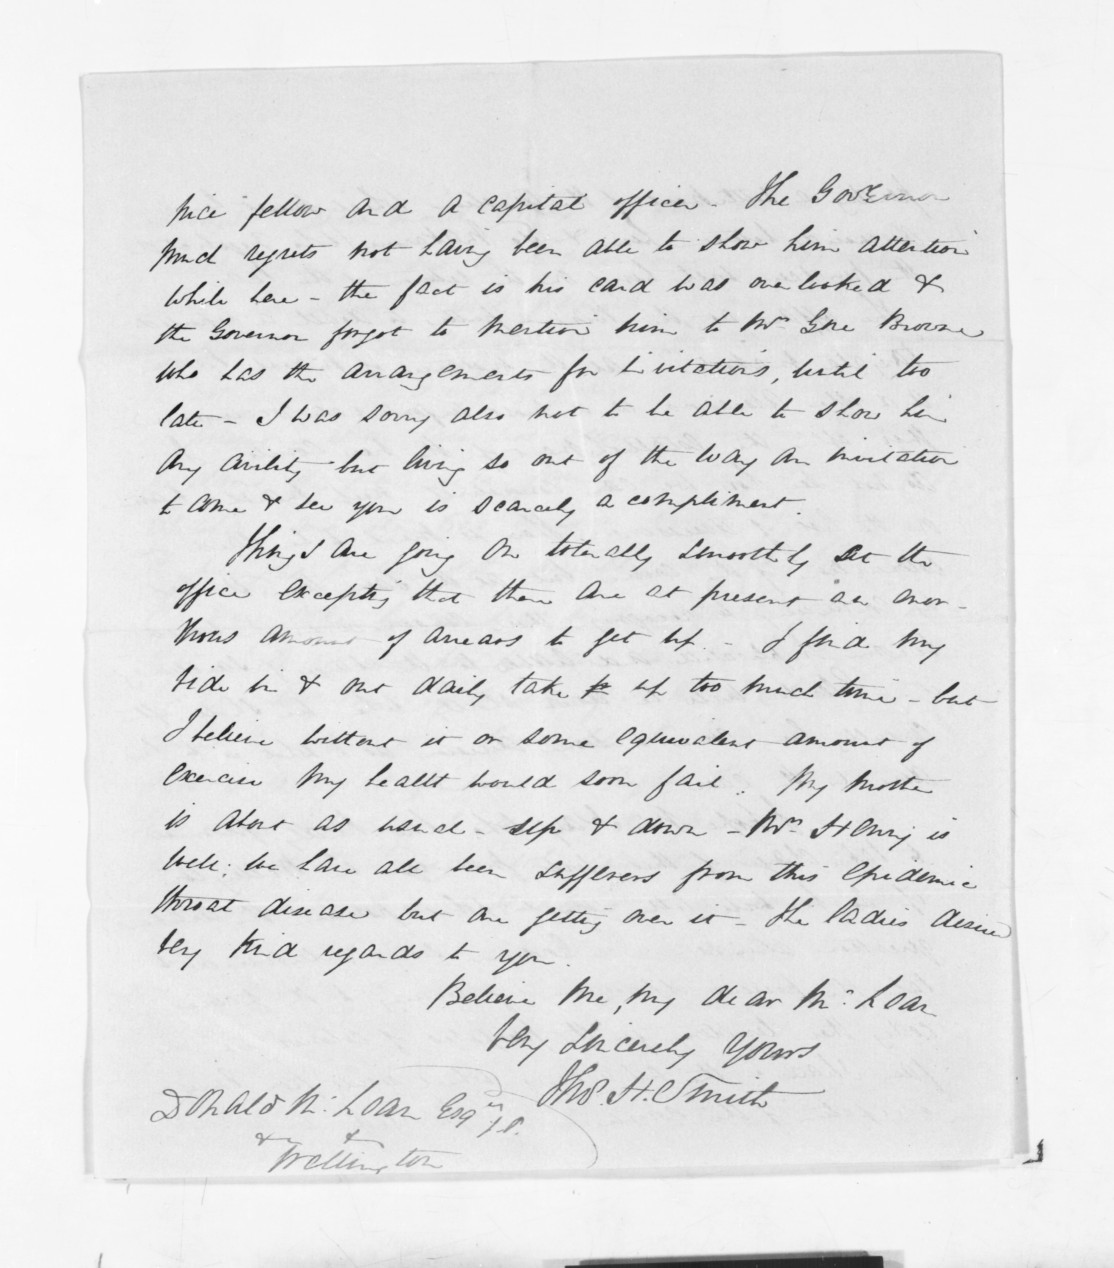 nice fellow and a capital officer. The Governor
much regrets not having been able to show him attention
while here - the fact is his card was overlooked &
the Governor forgot to mention him to Mrs Gore Browne
who has the arrangements for invitations, until too
late - I was sorry also not to be able to show him
any civility but living so out of the way an invitation
to come & see you is scarcely a compliment.
Things are going on tolerably smoothly at the
office excepting that there are at present an enor-
mous amount of arrears to get up. - I find my
ride in & out daily take up too much time - but
I believe without it or some equivalent amount of
exercise my health would soon fail. My mother
is about as usual - up & down - Mrs Henry is
well. We have all been sufferers from this epidemic
throat disease but are getting over it - The ladies desire
very kind regards to you.
Believe me, my dear McLean
Very Sincerely Yours
Thos. H. Smith
Donald McLean Esqre J.P.
& &
Wellington